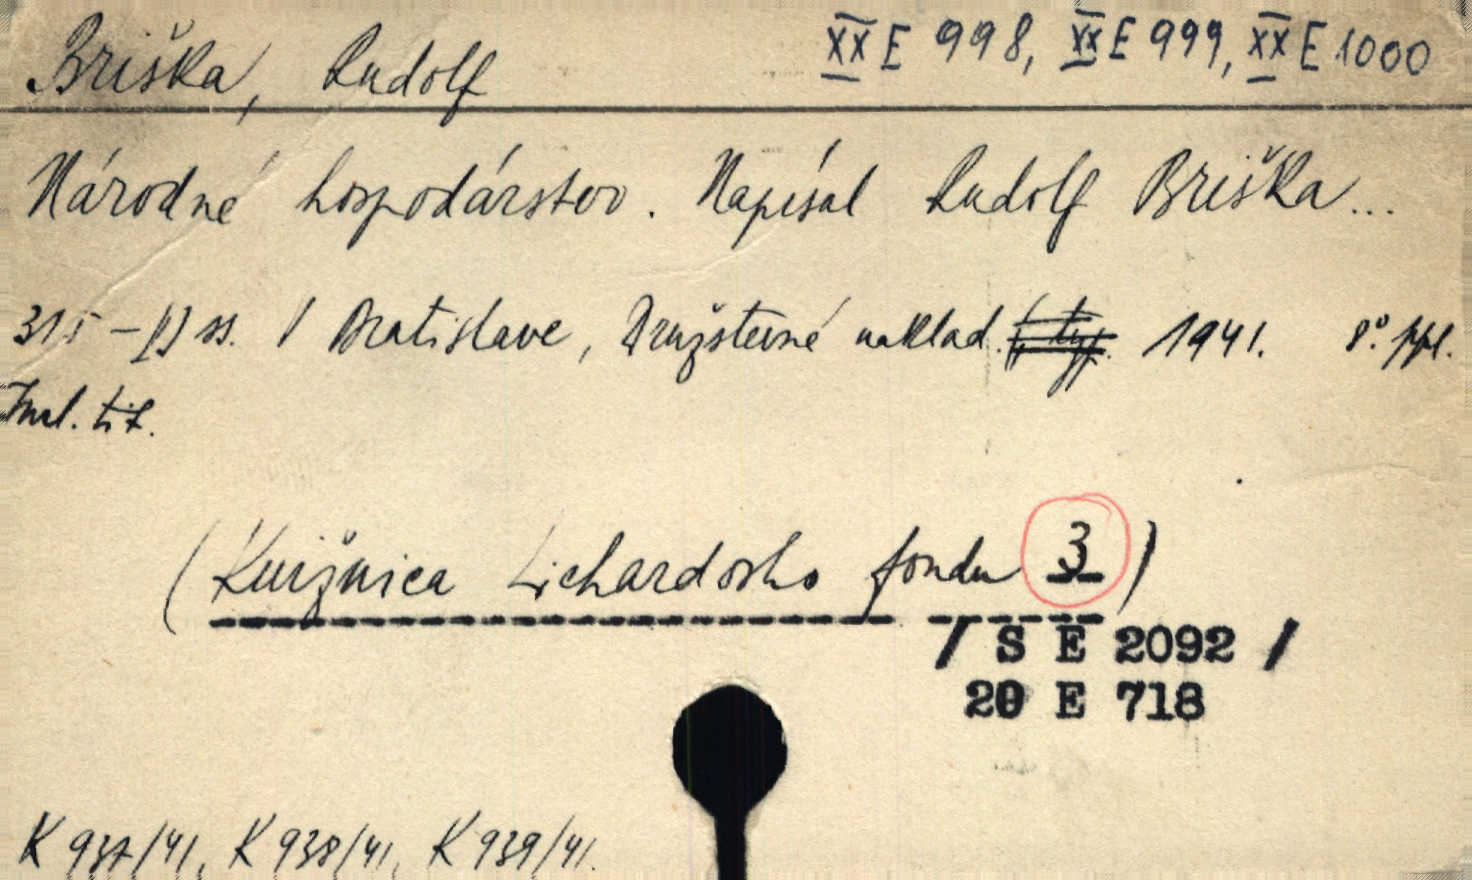 Briška, Rudolf
XX E 998, XX E 999, XX E 1000
Národné hospodárstvo. Napísal Rudolf Briška...
315 – [I] ss. V Bratislave, Družstevné naklad. 1941. 8°. ppl.
Incl. tit.
(Knižnica Lichardovho fondu 3)
/ S E 2092 /
20 E 718
K 937/41, K 938/41, K 939/41.